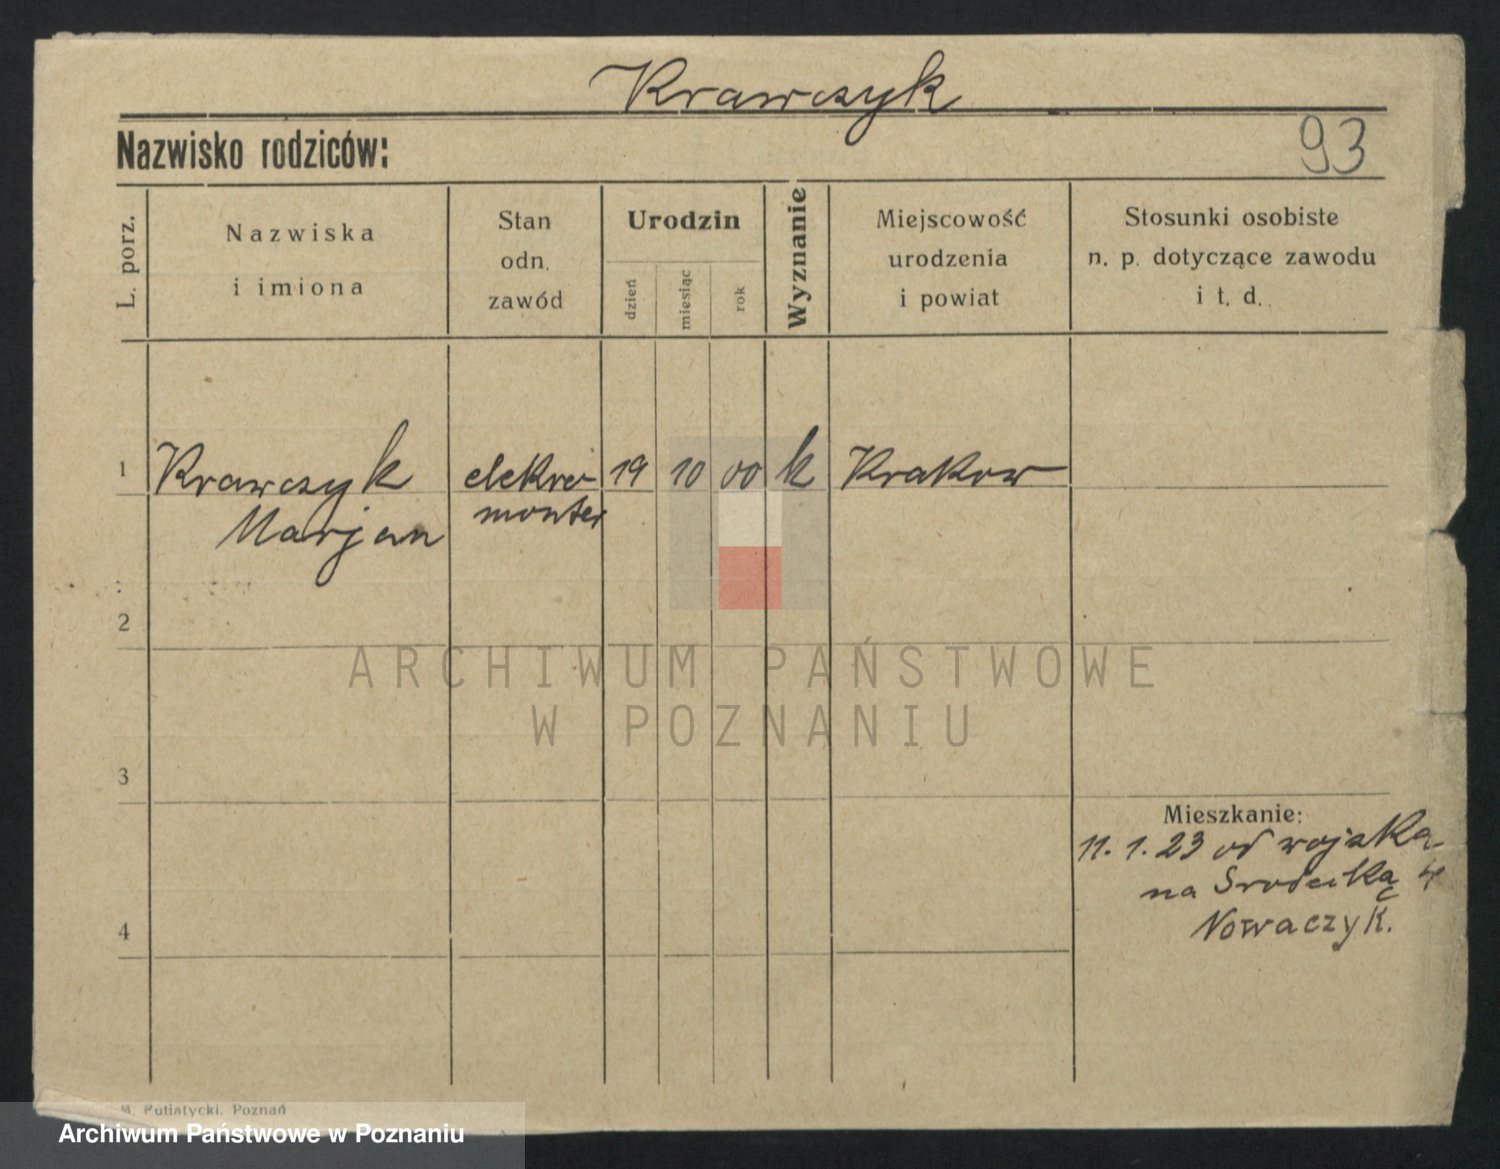 Krawczyk
Nazwisko rodziców:
93
L. porz.
Nazwiska
i imiona
Stan
odn.
zawód
Urodzin
dzień
miesiąc
rok
Wyznanie
Miejscowość
urodzenia
i powiat
Stosunki osobiste
n. p. dotyczące zawodu
i t. d.
1
Krawczyk
Marjan
elektro-
monter
19
10
00
k
Krakow
2
3
4
Mieszkanie:
11. 1. 23 od wojska
na Srodecką 4
Nowaczyk.
ARCHIWUM PAŃSTWOWE
W POZNANIU
M. Putiatycki. Poznań
Archiwum Państwowe w Poznaniu